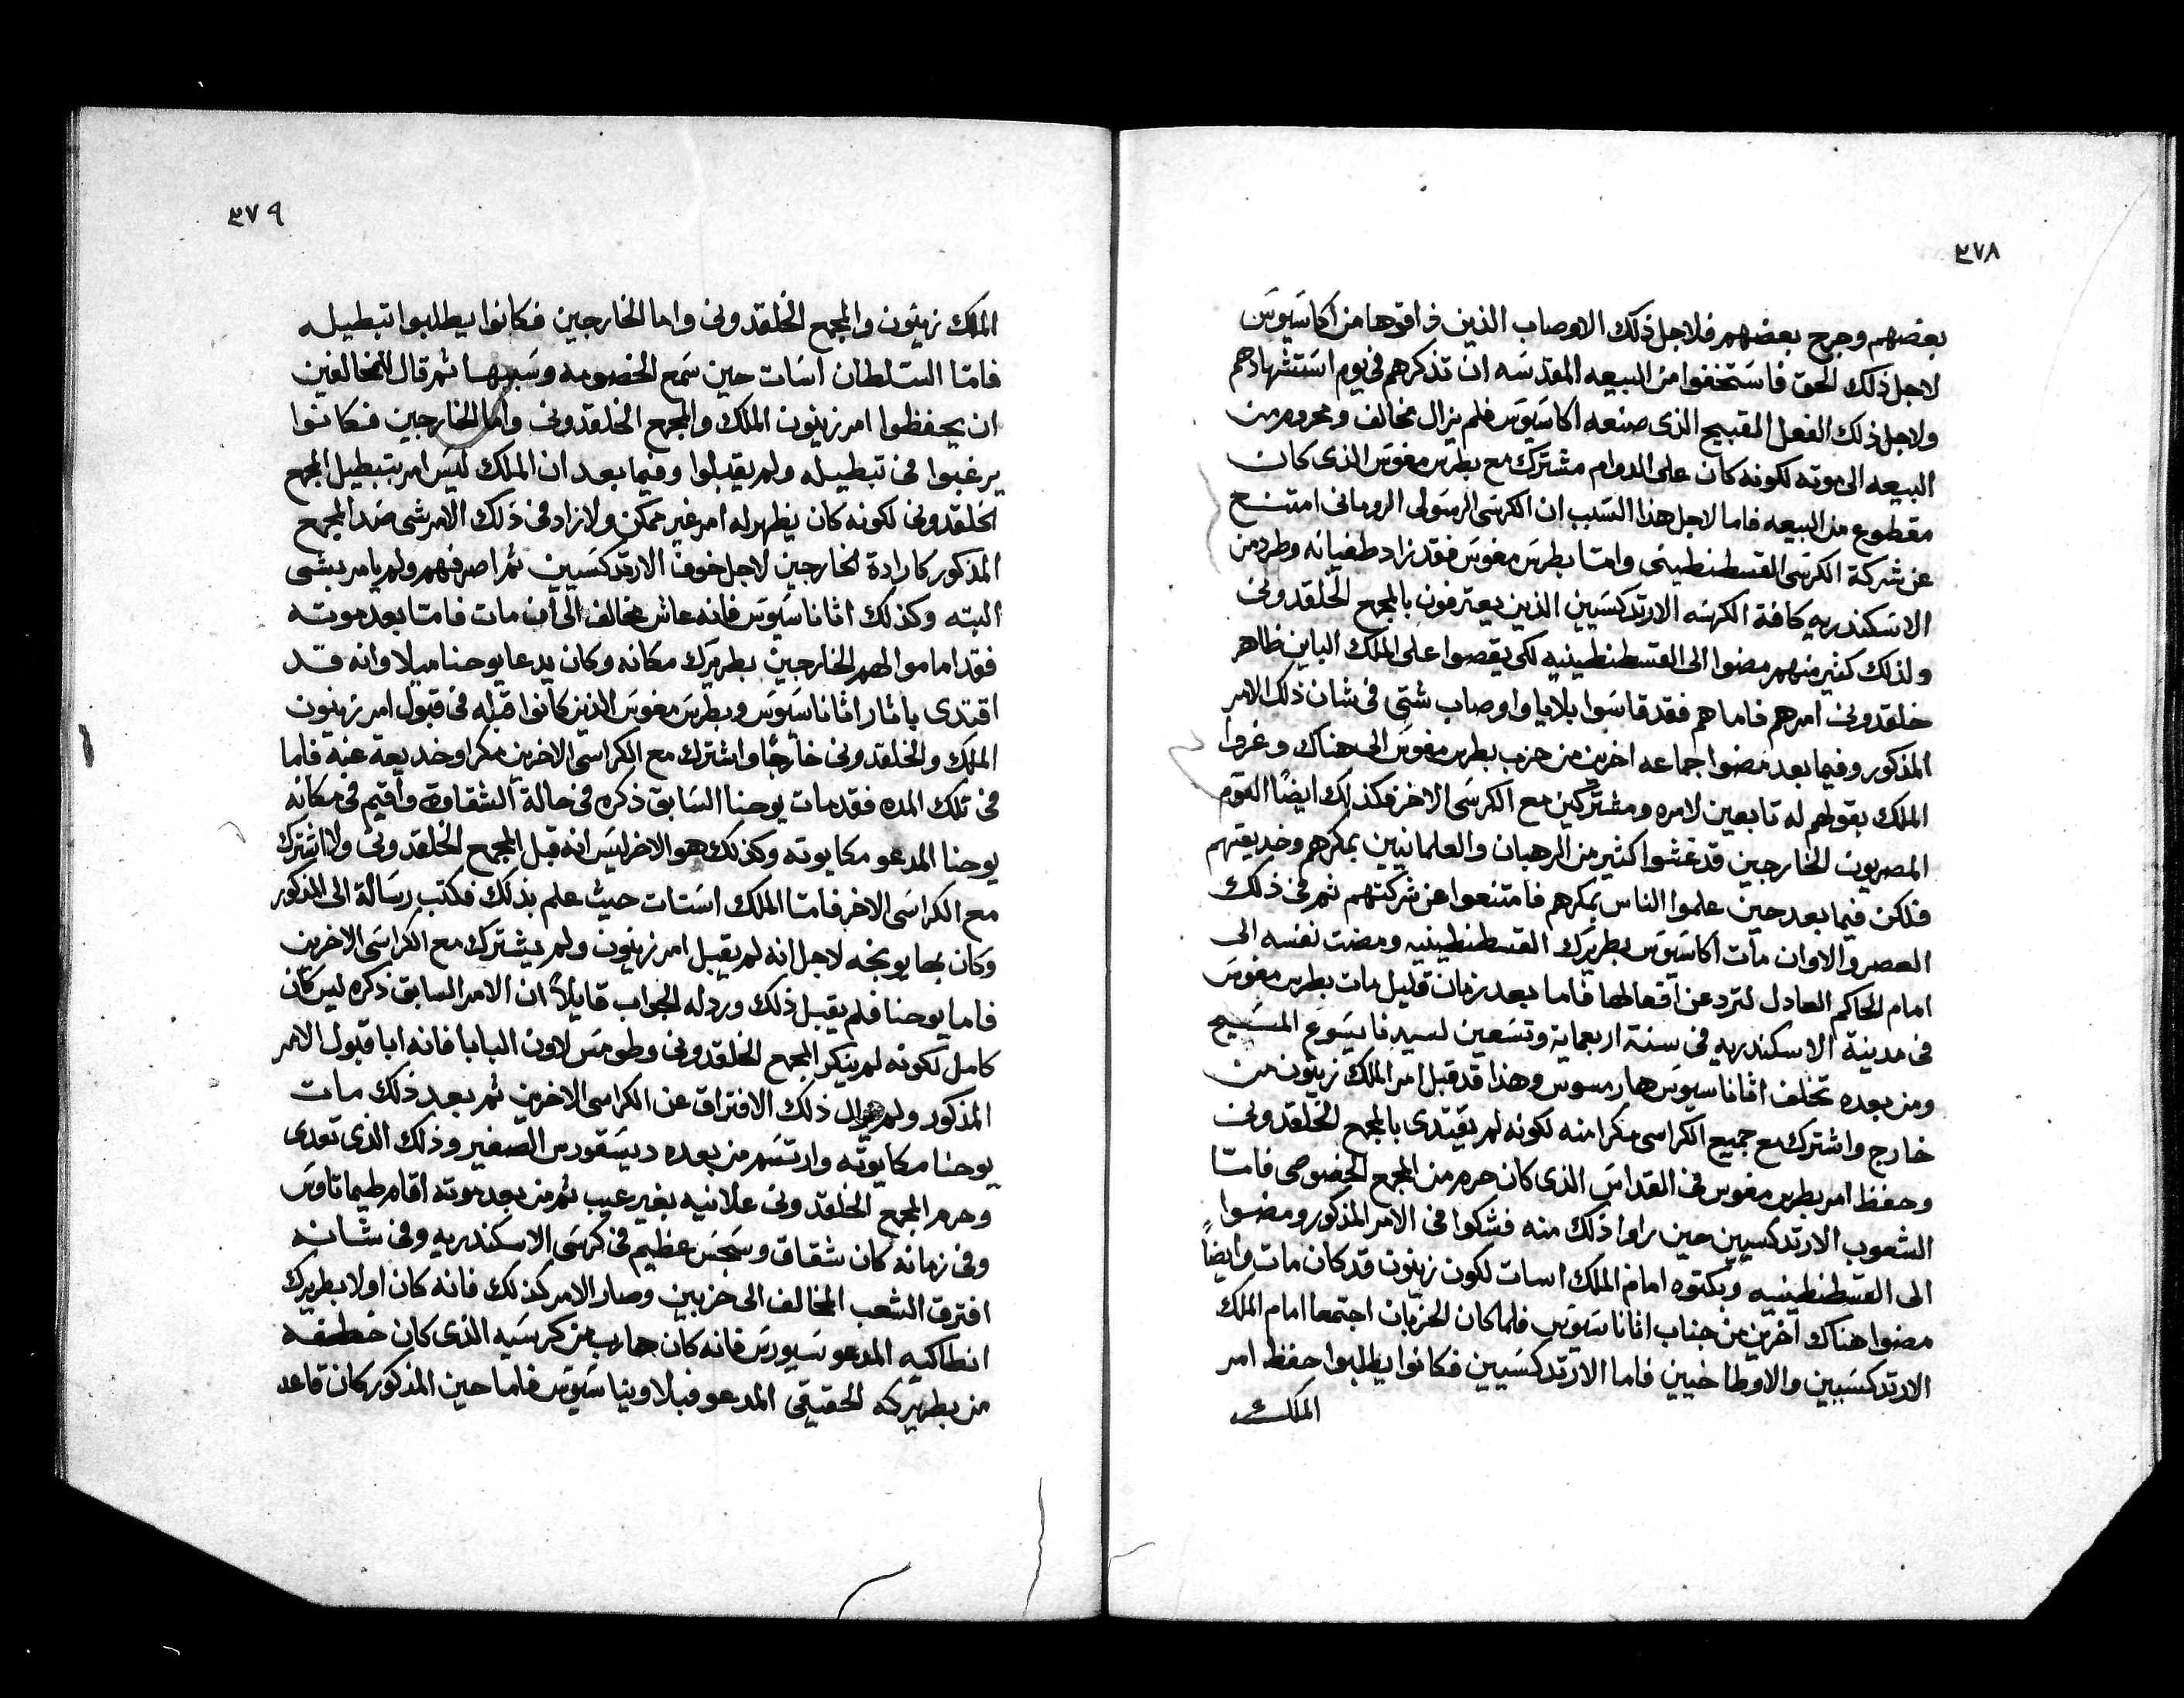 ٣٧٨
بعضهم وجرح بعضهم فلاجل ذلك الاوصاب الذين ذاقوها من اكاسيوس
لاجل ذلك الحق فاستخفوا من البيعه المقدسه ان تذكرهم فى يوم استشهادهم
ولاجل ذلك الفعل القبيح الذى صنعه اكاسيوس فلم يزال مخالف ومحروم من
البيعه الى موته لكونه كان على الدوام مشترك مع بطرس مغوس الذى كان
مقطوع من البيعه فاما لاجل هذا السبب ان الكرسى الرسولى الرومانى امتنع
عن شركة الكرسى القسطنطينى وامتا بطرس مغوس فقد زاد طغيانه وطرد من
الاسكندريه كافة الكهنه الارتدكسيين الذين يعترفون بالمجمع الخلقدونى
ولذلك كثير منهم مضوا الى القسطنطينيه لكى يقصوا على الملك الباين ظاهر
خلقدونى امرهم فاما هم فقد قاسوا بلايا واوصاب شتى فى شان ذلك الامر
المذكور وفيما بعد مضوا جماعه اخرين من حزب بطرس مغوس الى هناك وغروا
الملك بقولهم له تابعين لامره ومشتركين مع الكرسى الاخر وكذلك ايضًا القوم
المصريون الخارجين قد غشوا كثير من الرهبان والعلمانيين بمكرهم وخديعتهم
فلكن فيما بعد حين علموا الناس بمكرهم فامتنعوا عن شركتهم ثم فى ذلك
العصر والاوان مات اكاسيوس بطريرك القسطنطينيه ومضت نفسه الى
امام الحاكم العادل لترد عن افعالها فاما بعد زمان قليل مات بطرس مغوس
فى مدينة الاسكندريه فى سنة اربعماية وتسعين لسيدنا يسوع المسيح
ومن بعده تخلف اثاناسيوس هارمسوس وهذا قد قبل امر الملك زينون من
خارج واشترك مع جميع الكراسى مكرا منه لكونه لم يقتدى بالمجمع الخلقدونى
وحفظ امر بطرس مغوس فى القداس الذى كان حرم من المجمع الخصوصى فامتا
الشعوب الارتدكسيين حين راوا ذلك منه فشكوا فى الامر المذكور ومضوا
الى القسطنطينيه وبكتوه امام الملك اسات لكون زينون قد كان مات وايضاً
مضوا هناك اخرين من جناب اثاناسيوس فلما كان الحزبان اجتمعا امام الملك
الارتدكسيين والاوطاخيين فاما الارتدكسيين فكانوا يطلبوا حفظ امر
الملك
٣٧٩
الملك زينون والمجمع الخلقدونى واما الخارجين فكانوا يطلبوا تبطيله
فامتا السلطان اسات حين سمع الخصومه وسببها ثم قال للمخالفين
ان يحفظوا امر زينون الملك والمجمع الخلقدونى واما الخارجين فكانوا
يرغبوا فى تبطيله ولم يقبلوا وفيما بعد ان الملك ليس امر بتبطيل المجمع
الخلقدونى لكونه كان يظهر له امر غير ممكن ولا زاد فى ذلك الامر شى ضد المجمع
المذكور كارادة الخارجين لاجل خوف الارتدكسيين ثم اصرفهم ولم يامر بشى
البته وكذلك اثاناسيوس فانه عاش مخالف الى أن مات فامتا بعد موته
فقد اماموا لهم الخارجين بطريرك مكانه وكان يدعا يوحنا ميلا وانه قد
اقتدى باثار اثاناسيوس وبطرس مغوس الذين كانوا قبله فى قبول امر زينون
الملك والخلقدونى خارجًا واشترك مع الكراسى الاخرين مكرا وخديعة عنه فاما
فى تلك المده فقد مات يوحنا السابق ذكره فى حالة الشقاوة وأقيم فى مكانه
يوحنا المدعو مكايوته وكذلك هو الاخر ليس انه قبل المجمع الخلقدونى ولا اشترك
مع الكراسى الاخر فامتا الملك استات حيث علم بذلك فكتب رسالة الى المذكور
وكان بها يوبخه لاجل انه لم يقبل امر زينون ولم يشترك مع الكراسى الاخرين
فاما يوحنا فلم يقبل ذلك ورد له الجواب قايلاً ان الامر السابق ذكره ليس كان
كامل لكونه لم ينكر المجمع الخلقدونى وطومس لاون البابا فانه ابا قبول الامر
المذكور ولم ذلك الافتراق عن الكراسى الاخرين ثم بعد ذلك مات
يوحنا مكايوته وارتسم من بعده ديسقورس الصغير وذلك الذى تعدى
وحرم المجمع الخلقدونى علانيه بغير عيب ثم من بعد موته اقام طيماتاوس
وفى زمانه كان شقاق وسجس عظيم فى كرسى الاسكندريه وفى شانه
افترق الشعب المخالف الى حزبين وصار الامر كذلك فانه كان اولا بطريرك
انطاكيه المدعو سيورس فانه كان هارب من كرسيه الذى كان خطفه
من بطريركه الحقيقى المدعو فبلاوينيا سيوس فاما حين المذكور كان قاعد